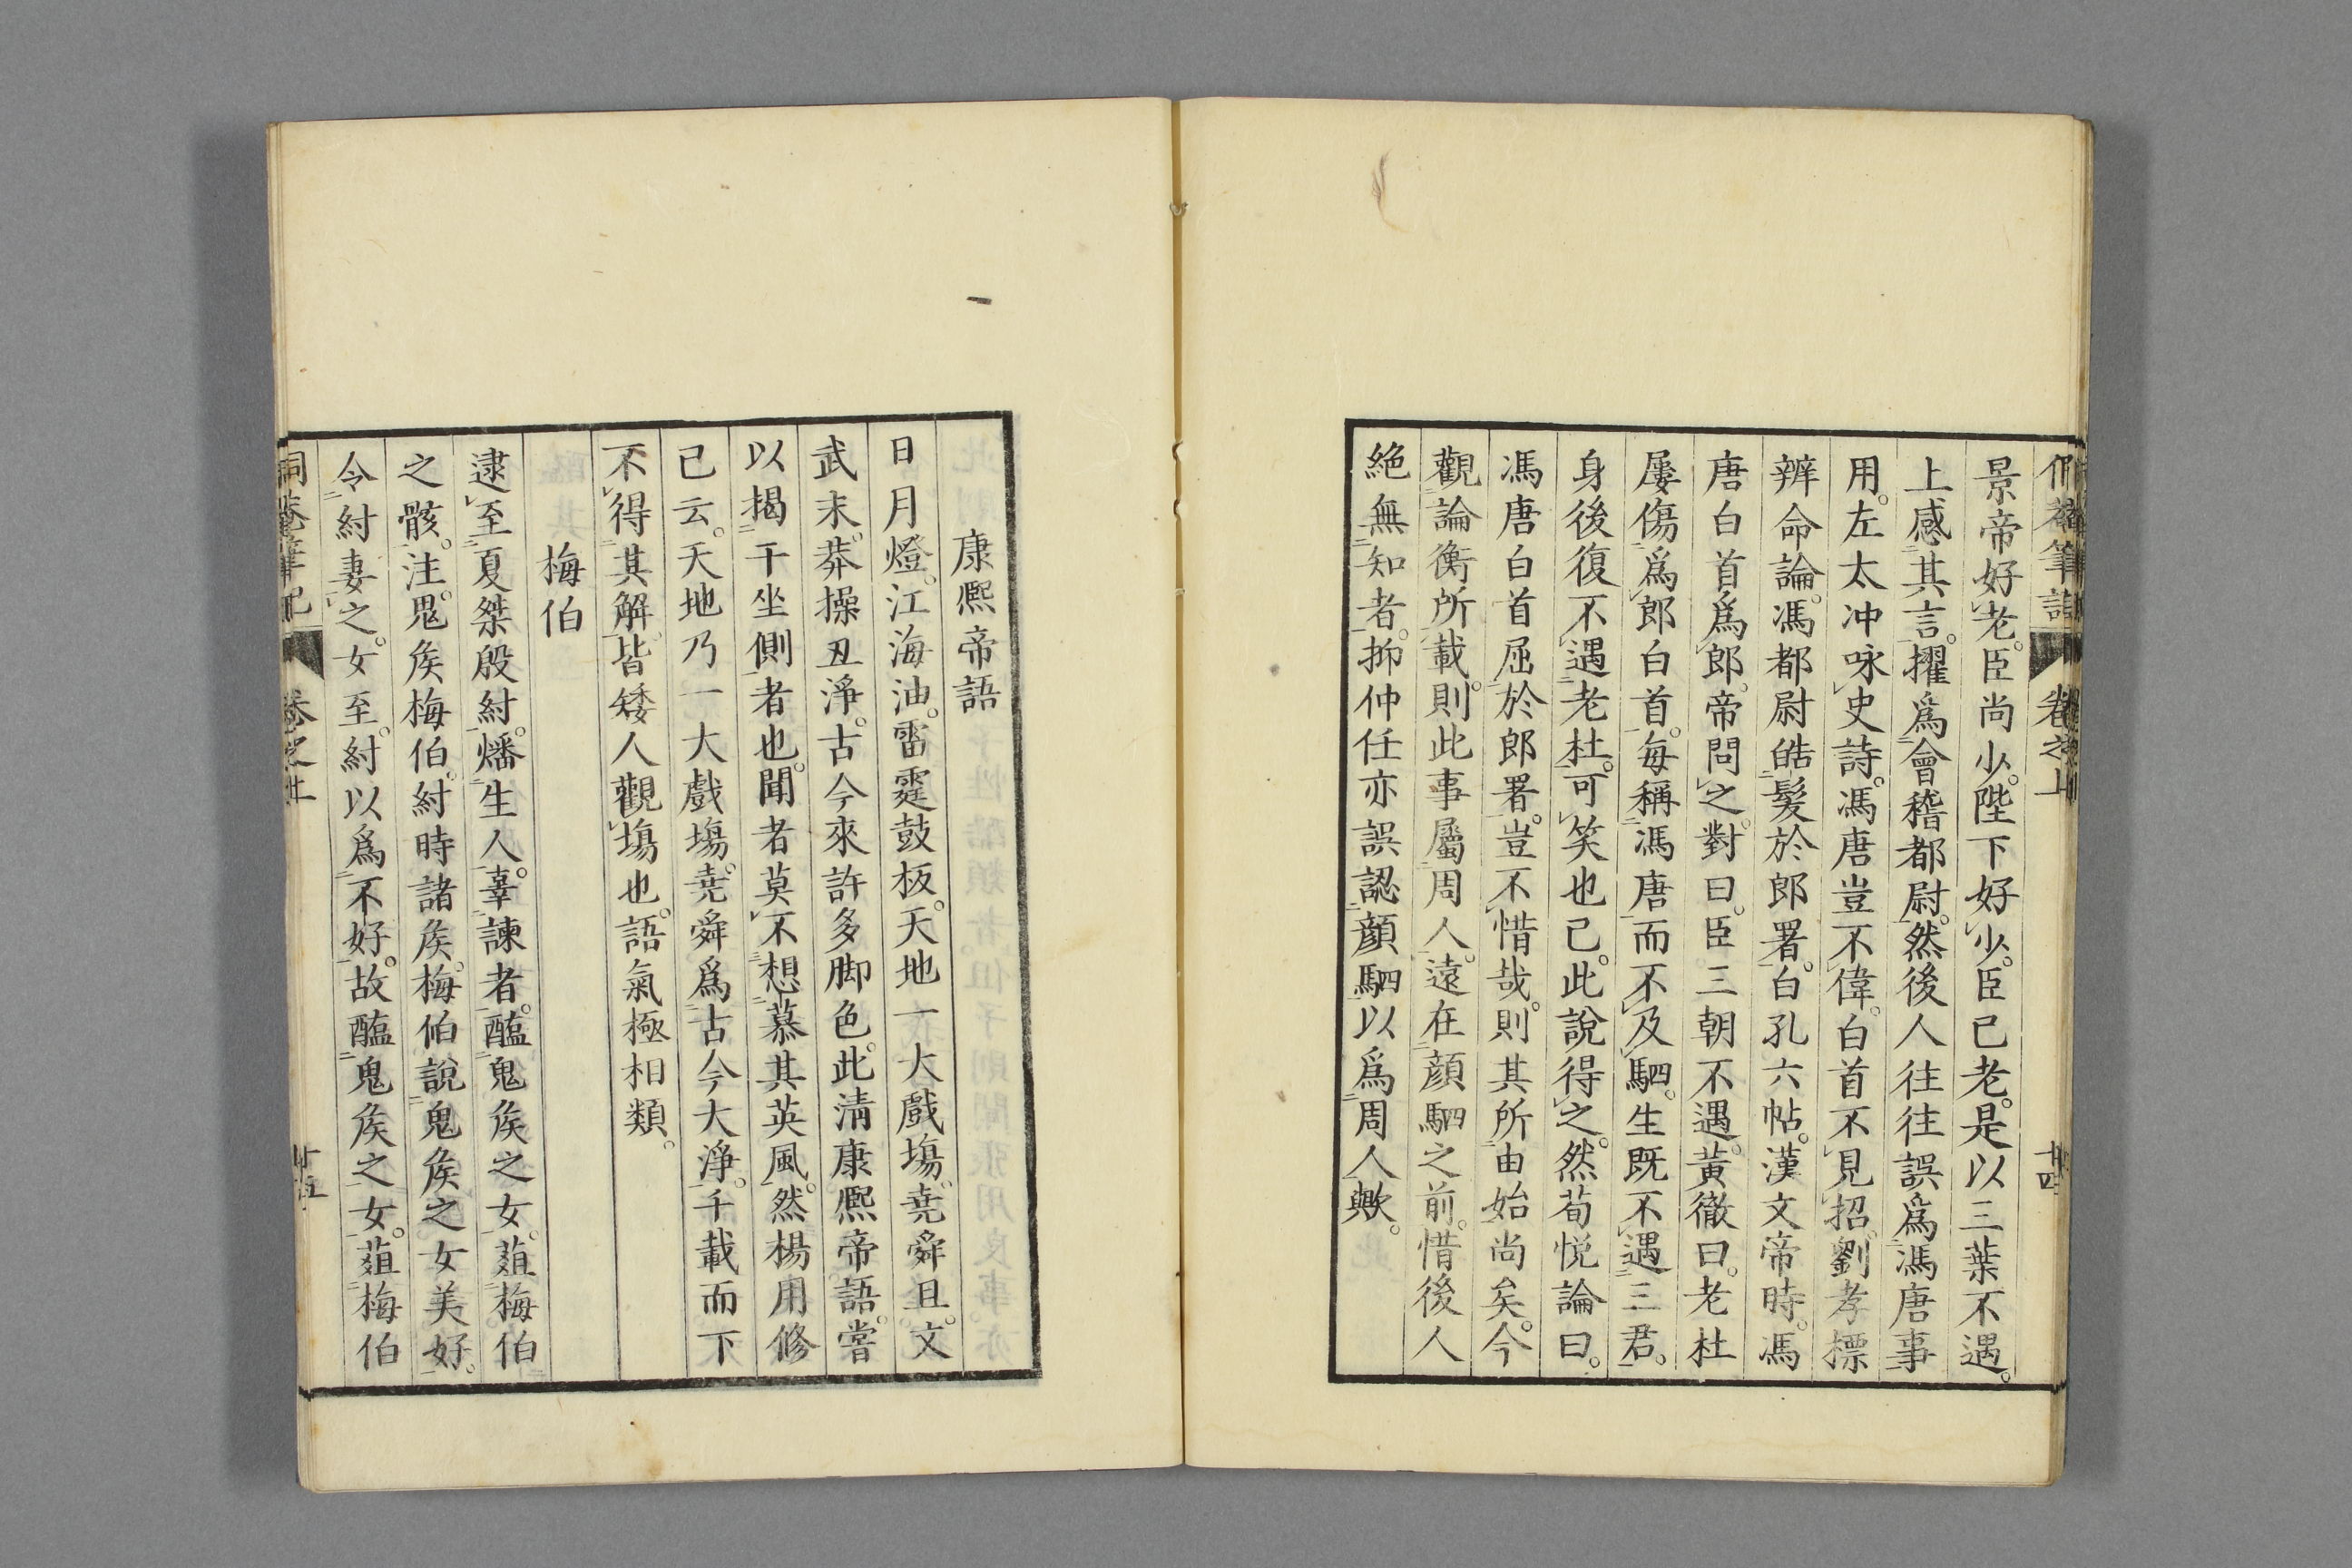 景帝好老。臣尚少。陛下好少。臣已老。是以三葉不遇。
上感其言。擢爲會稽都尉。然後人往往誤爲馮唐事
用。左太冲咏史詩。馮唐豈不偉。白首不見招。劉孝標
辨命論。馮都尉皓髮於郎署。白孔六帖。漢文帝時。馮
唐白首爲郎。帝問之。對曰。臣三朝不遇。黃徹曰。老杜
屢傷爲郎白首。每稱馮唐而不及駟。生既不遇三君。
身後復不遇老杜。可笑也已。此說得之。然荀悅論曰。
馮唐白首屈於郎署。豈不惜哉。則其所由始尚矣。今
觀論衡所載。則此事屬周人。遠在顏駟之前。惜後人
絶無知者。抑仲任亦誤認顏駟以爲周人歟。
康熙帝語
日月燈。江海油。雷霆鼓板。天地一大戲塲。堯舜旦。文
武末。莽操丑淨。古今來許多脚色。此淸康熙帝語。嘗
以揭于坐側者也。聞者莫不想慕其英風。然楊用修
已云。天地乃一大戲塲。堯舜爲古今大淨。千載而下
不得其解。皆矮人觀塲也。語氣極相類。
梅伯
逮至夏桀殷紂。燔生人。辜諫者。醢鬼矦之女。葅梅伯
之骸。注。鬼矦梅伯。紂時諸矦。梅伯說鬼矦之女美好。
令紂妻之。女至。紂以爲不好。故醢鬼矦之女。葅梅伯
侗菴筆記
卷之上
十五